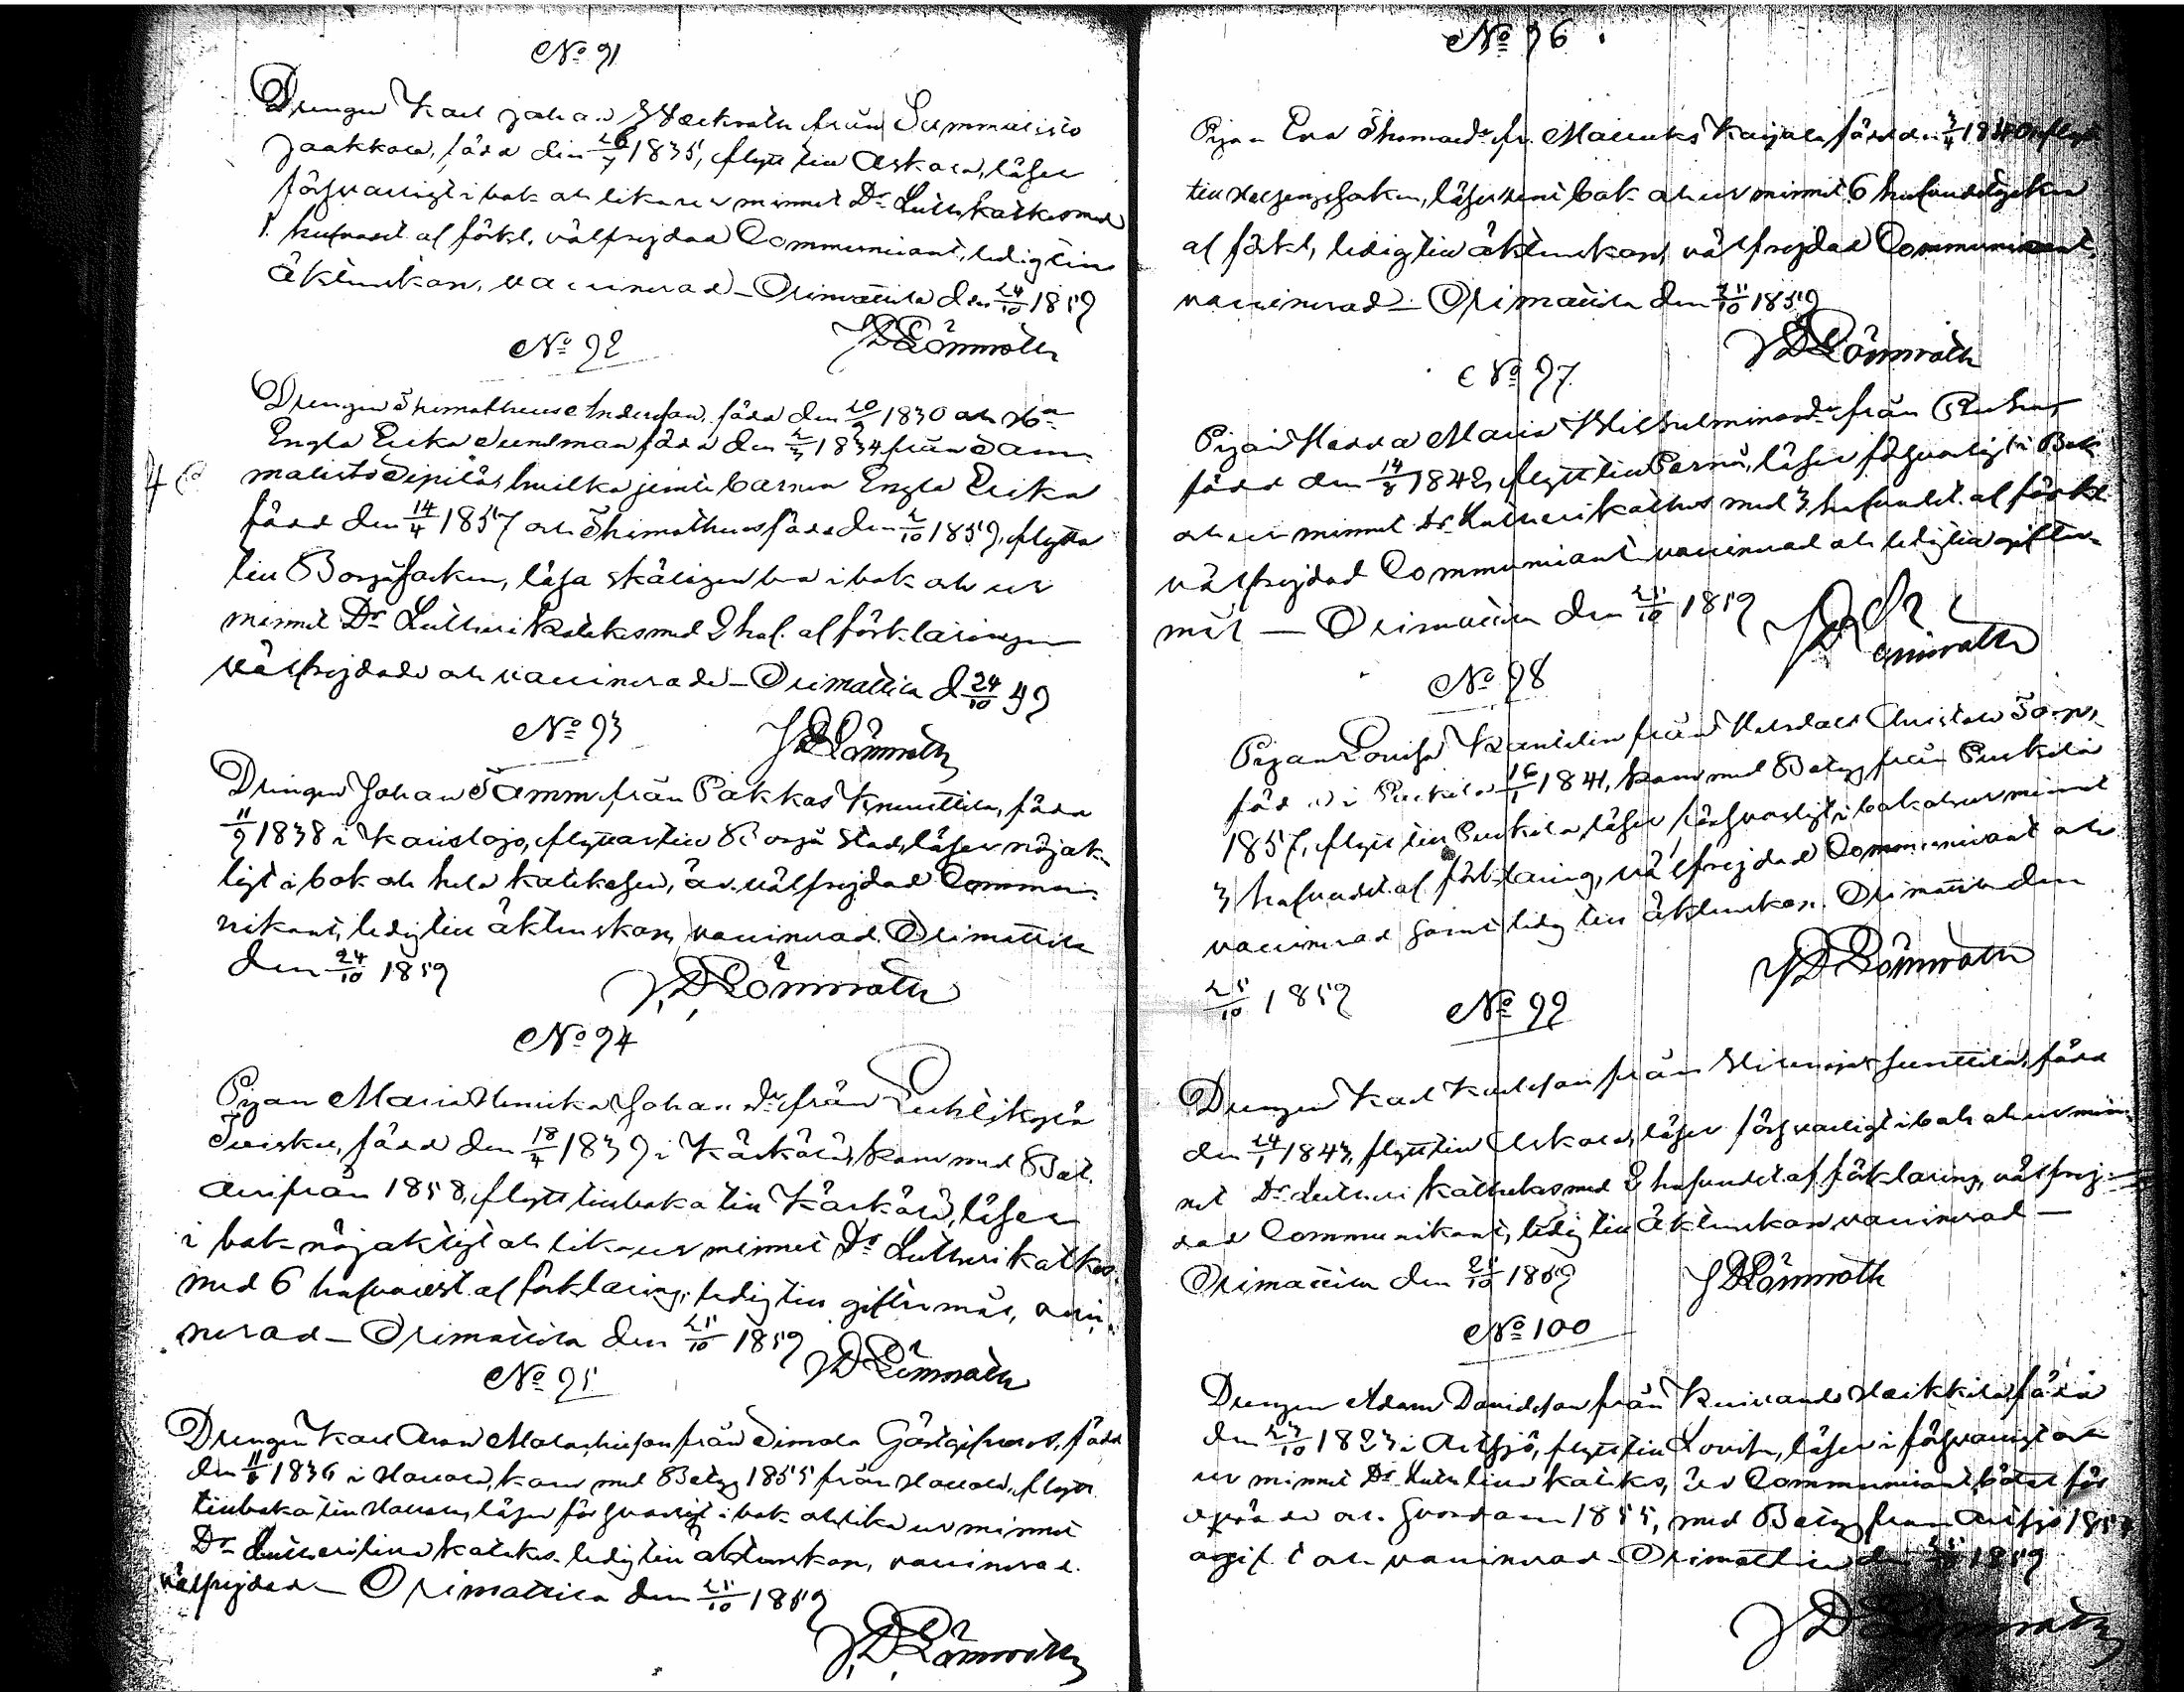 No 91
Drengen Karl Johan från Sammalisto
Jaakkola, född den 26/7 1835, flytt till Askola, läser
försvarligt i bok och lika ur minnet Dr Luth. katkes med
1 hufvudst. af förkl. välfrejdad Communicant, ledig till
äktenskap, vaccinerad – Orimattila den 24/10 1859
JDLönnroth
No 92
Drengen Thimotheus Andersson, född den 20/9 1830 och H:n
Engla Erika född den 2/3 1834 från Sam-
malisto Seppälä, hvilka jemte barnen Engla Erika
född den 14/4 1857 och Thimotheus född den 2/10 1859, flytta
till Borgå Socken, läsa skäligen bra i bok och ur
minnet Dr Lutheri Katekes med 2 huf. af förklaringen
välfrejdade och vaccinerade – Orimattila d 24/10 59
JDLönnroth
No 93
Drengen Johan Tamm från Pakkas Knuuttila, född
11/9 1838 i Karislojo, flyttar till Borgå Stad, läser nöjak-
ligt i bok och hela katekesen, är välfrejdad Commu-
nikant, ledig till äktenskap, vaccinerad. Orimattila
den 24/10 1859
JDLönnroth
No 94
Pigan Maria Henrika Johansdr från Luhtikylä
född den 18/4 1839 i Kärkölä, kom med Bet.
derifrån 1858, flytt tillbaka till Kärkölä, läser
i bok nöjaktigt och lika ur minnet Dr Lutheri katkes
med 6 hufvudst. af förklaring, ledig till giftermål, vacci-
nerad – Orimattila den 25/10 1859
JDLönnroth
No 95
Drengen Karl Aron Malachiasson från Simola Gästgifveri, född
den 11/6 1836 i Hollola, kom med Betyg 1855 från Hollola, flytt
tillbaka till Hollola, läser försvarligt i bok och lika ur minnet
Dr Lutheri lilla katekes ledig till äktenskap, vaccinerad
välfrejdad – Orimattila den 25/10 1859
JDLönnroth
No 96
Pigan Eva Thomasdr fr. Mallusks Karjala född den 3/4 1840 flytt
till Helsinge socken, läser rent i bok och ur minnet 6 hufvudstycken
af förkl, ledig till äktenskap, välfrejdad Communicant,
vaccinerad – Orimattila den 25/10 1859
JDLönnroth
No 97
Pigan Hedda Maria Wilhelminasdr från
född den 14/8 1842, flytt till Pernå, läser försvarligt i Bok
och ur minnet Dr Lutheri kathes med 3 hufvudst. af förkl.
välfrejdad Communicant vaccinerad och ledig till gifter-
mål – Orimattila den 25/10 1859
JDLönnroth
No 98
Pigan Lovisa från
född i Puckila 16/1 1841, kom med Betyg från Puckila
1857, flytt till Puckila läser försvarligt i bok och ur minnet
3 hufvudst. af förklaring, välfrejdad Communicant och
vaccinerad samt ledig till äktenskap. Orimattila den
25/10 1859
JDLönnroth
No 99
Drengen Karl Karlsson från Junttila, född
den 24/1 1843, flytt till Askola, läser försvarligt i bok och ur min-
net Dr Lutheri kathekes med 2 hufvudst. af förklaring, välfrej-
dad Communikant, ledig till äktenskap vaccinerad –
Orimattila den 25/10 1859
JDLönnroth
No 100
Drengen Adam Davidsson från Kuivando Heikkilä född
den 23/10 1823 i Artsjö, flytt till Lovisa, läser i försvarligt och
ur minnet Dr Luth. lilla katekes, är Communicant bötat för
och svordom 1855, med Betyg från Artsjö
ogift och vaccinerad – Orimattila den 25/10 1859
JDLönnroth